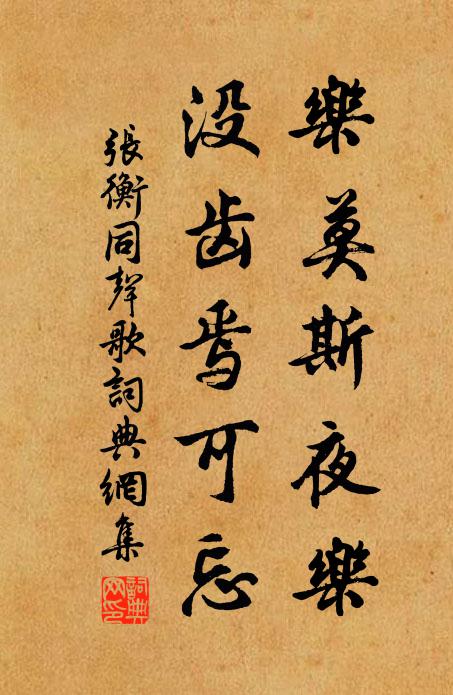 樂莫斯夜樂
没齒焉可忘
張衡同聲歌詞典網集
詞典
网印